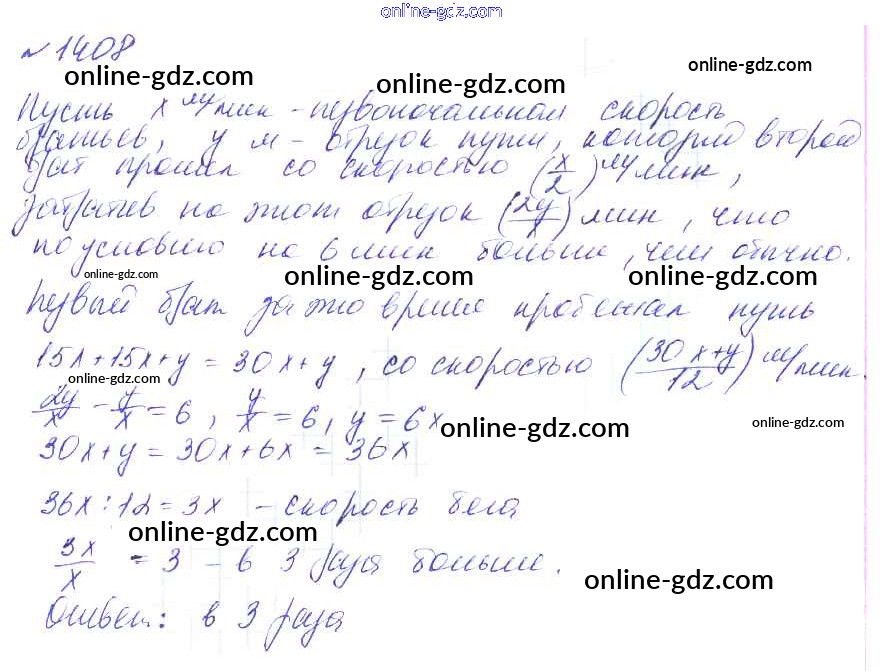 online-gdz.com
№ 1408
online-gdz.com online-gdz.com online-gdz.com
Пусть x м/мин - первоначальная скорость
братьев, y м - отрезок пути, который второй
брат прошел со скоростью (x/2) м/мин,
затратив на этот отрезок (2y/x) мин, что
по условию на 6 мин больше, чем обычно.
online-gdz.com online-gdz.com online-gdz.com
Первый брат за это время пробежал путь
15x + 15x + y = 30x + y, со скоростью ((30x+y)/12) м/мин.
online-gdz.com
2y/x - y/x = 6, y/x = 6, y = 6x
online-gdz.com online-gdz.com
30x + y = 30x + 6x = 36x
36x : 12 = 3x - скорость бега
online-gdz.com
3x/x = 3 - в 3 раза больше.
online-gdz.com
Ответ: в 3 раза